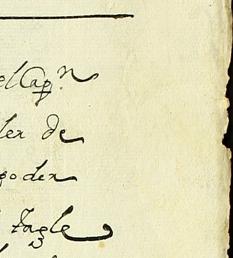 el Capn
ler de
poder
Tagle